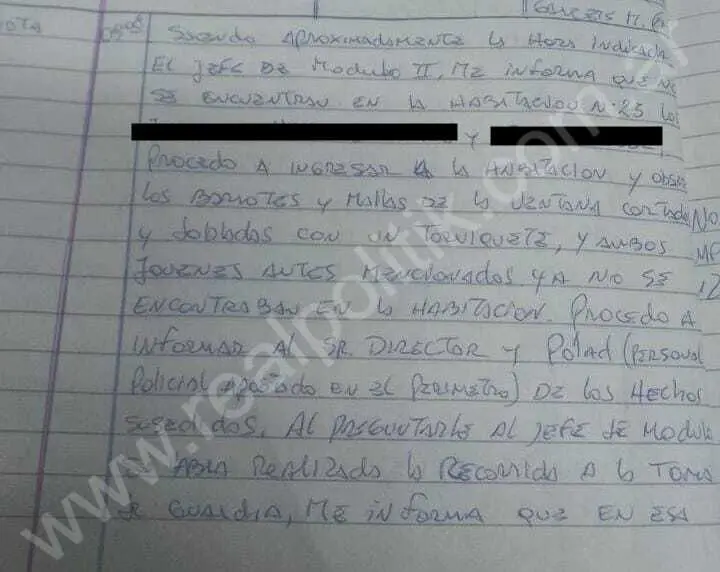 NOTA
05:05 Siendo aproximadamente la hora indicada
El Jefe de Modulo II, me informa que no
se encuentran en la habitacion N:25 los
y
Procedo a ingresar a la habitacion y obse
los barrotes y mallas de la ventana cortado
y doblados con un torniquete, y ambos
jovenes antes mencionados ya no se
encontraban en la habitacion. Procedo a
informar al Sr. Director y Polad (Personal
Policial apostado en el perimetro) de los hechos
susedidos. Al preguntarle al jefe de modulo
si abia realizado la recorrida a la toma
de guardia, me informa que en esa
No
12
www.realpolitik.com.ar